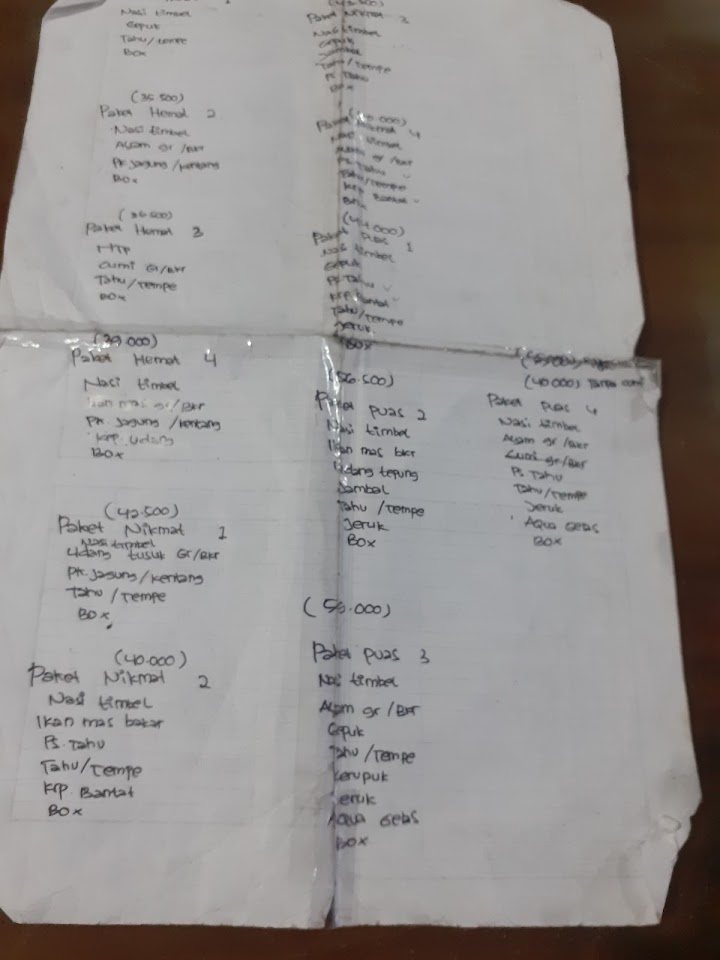 Nasi timbel
Gepuk
Tahu/tempe
Box
(36.500)
Paket Hemat 2
Nasi timbel
Ayam Gr /BKr
Pk. Jagung /kentang
Box
(36.500)
Paket Hemat 3
Cumi Gr/BKr
Tahu/Tempe
Box
(39.000)
Paket Hemat 4
Nasi timbel
Ikan mas gr/BKr
Pk. Jagung /kentang
Krp. Udang
Box
(42.500)
Paket Nikmat 1
Nasi timbel
Udang tusuk Gr/BKr
Pk. Jagung/kentang
Tahu /Tempe
Box
(40.000)
Paket Nikmat 2
Nasi timbel
Ikan mas bakar
Ps. Tahu
Tahu/Tempe
Krp. Bantat
Box
Paket Nikmat 3
Nasi timbel
Gepuk
Tahu/Tempe
Ps. Tahu
Box
Paket Nikmat 4
Nasi timbel
Ayam gr /BKr
Ps. Tahu
Tahu/Tempe
Krp Bantat
Box
Paket Puas 1
Nasi timbel
Gepuk
Ps. Tahu
Krp. Bantat
Tahu/Tempe
Jeruk
Box
(56.500)
Paket Puas 2
Nasi timbel
Ikan mas bkr
Udang tepung
Sambal
Tahu /Tempe
Jeruk
Box
(59.000)
Paket Puas 3
Nasi timbel
Ayam gr /BKr
Gepuk
Tahu /Tempe
Kerupuk
Jeruk
Aqua Gelas
Box
(40.000) Tanpa cumi
Paket Puas 4
Nasi timbel
Ayam gr /BKr
Cumi gr/BKr
Ps. Tahu
Tahu/Tempe
Jeruk
Aqua Gelas
Box